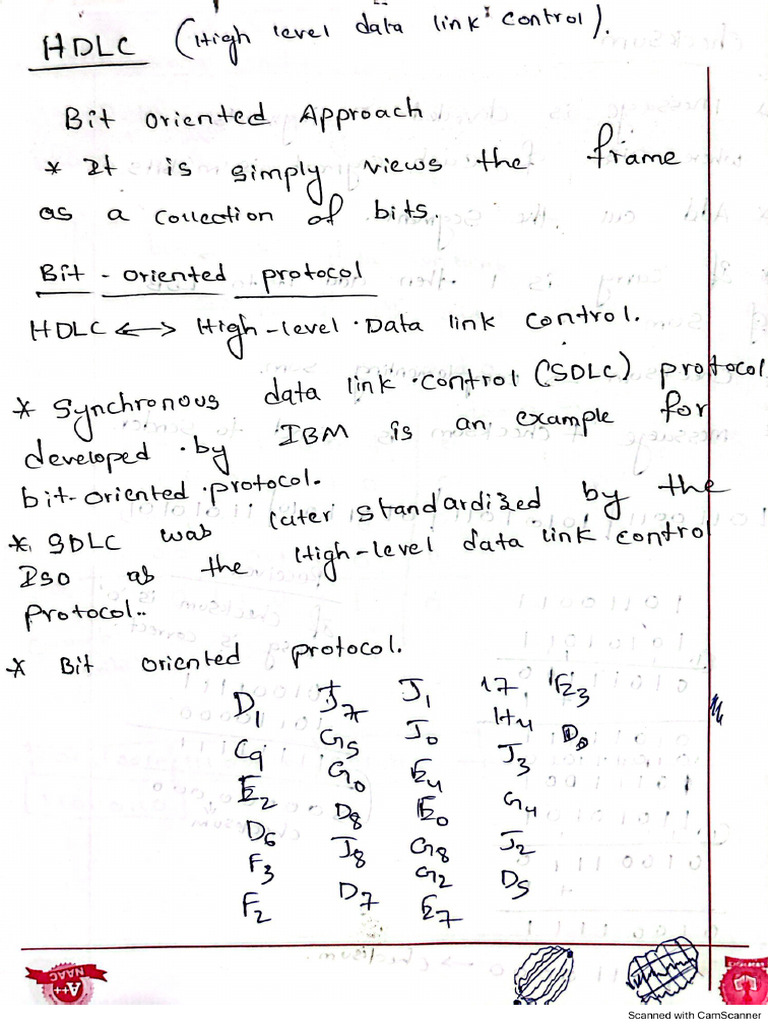 HDLC (High level data link control).
Bit oriented Approach
* It is simply views the frame
as a collection of bits.
Bit - oriented protocol
HDLC <--> High-level Data link control.
* Synchronous data link control (SDLC) protocol
developed by IBM is an example for
bit-oriented protocol.
* SDLC was later standardized by the
ISO as the High-level data link control
protocol..
* Bit oriented protocol.
D1 J7 J1 17 E3
C9 G5 J0 H4 D0
E2 G0 E4 J3
D6 D8 E0 G4
F3 J8 G8 J2
F2 D7 G2 D5
E7
A++
NAAC
Scanned with CamScanner